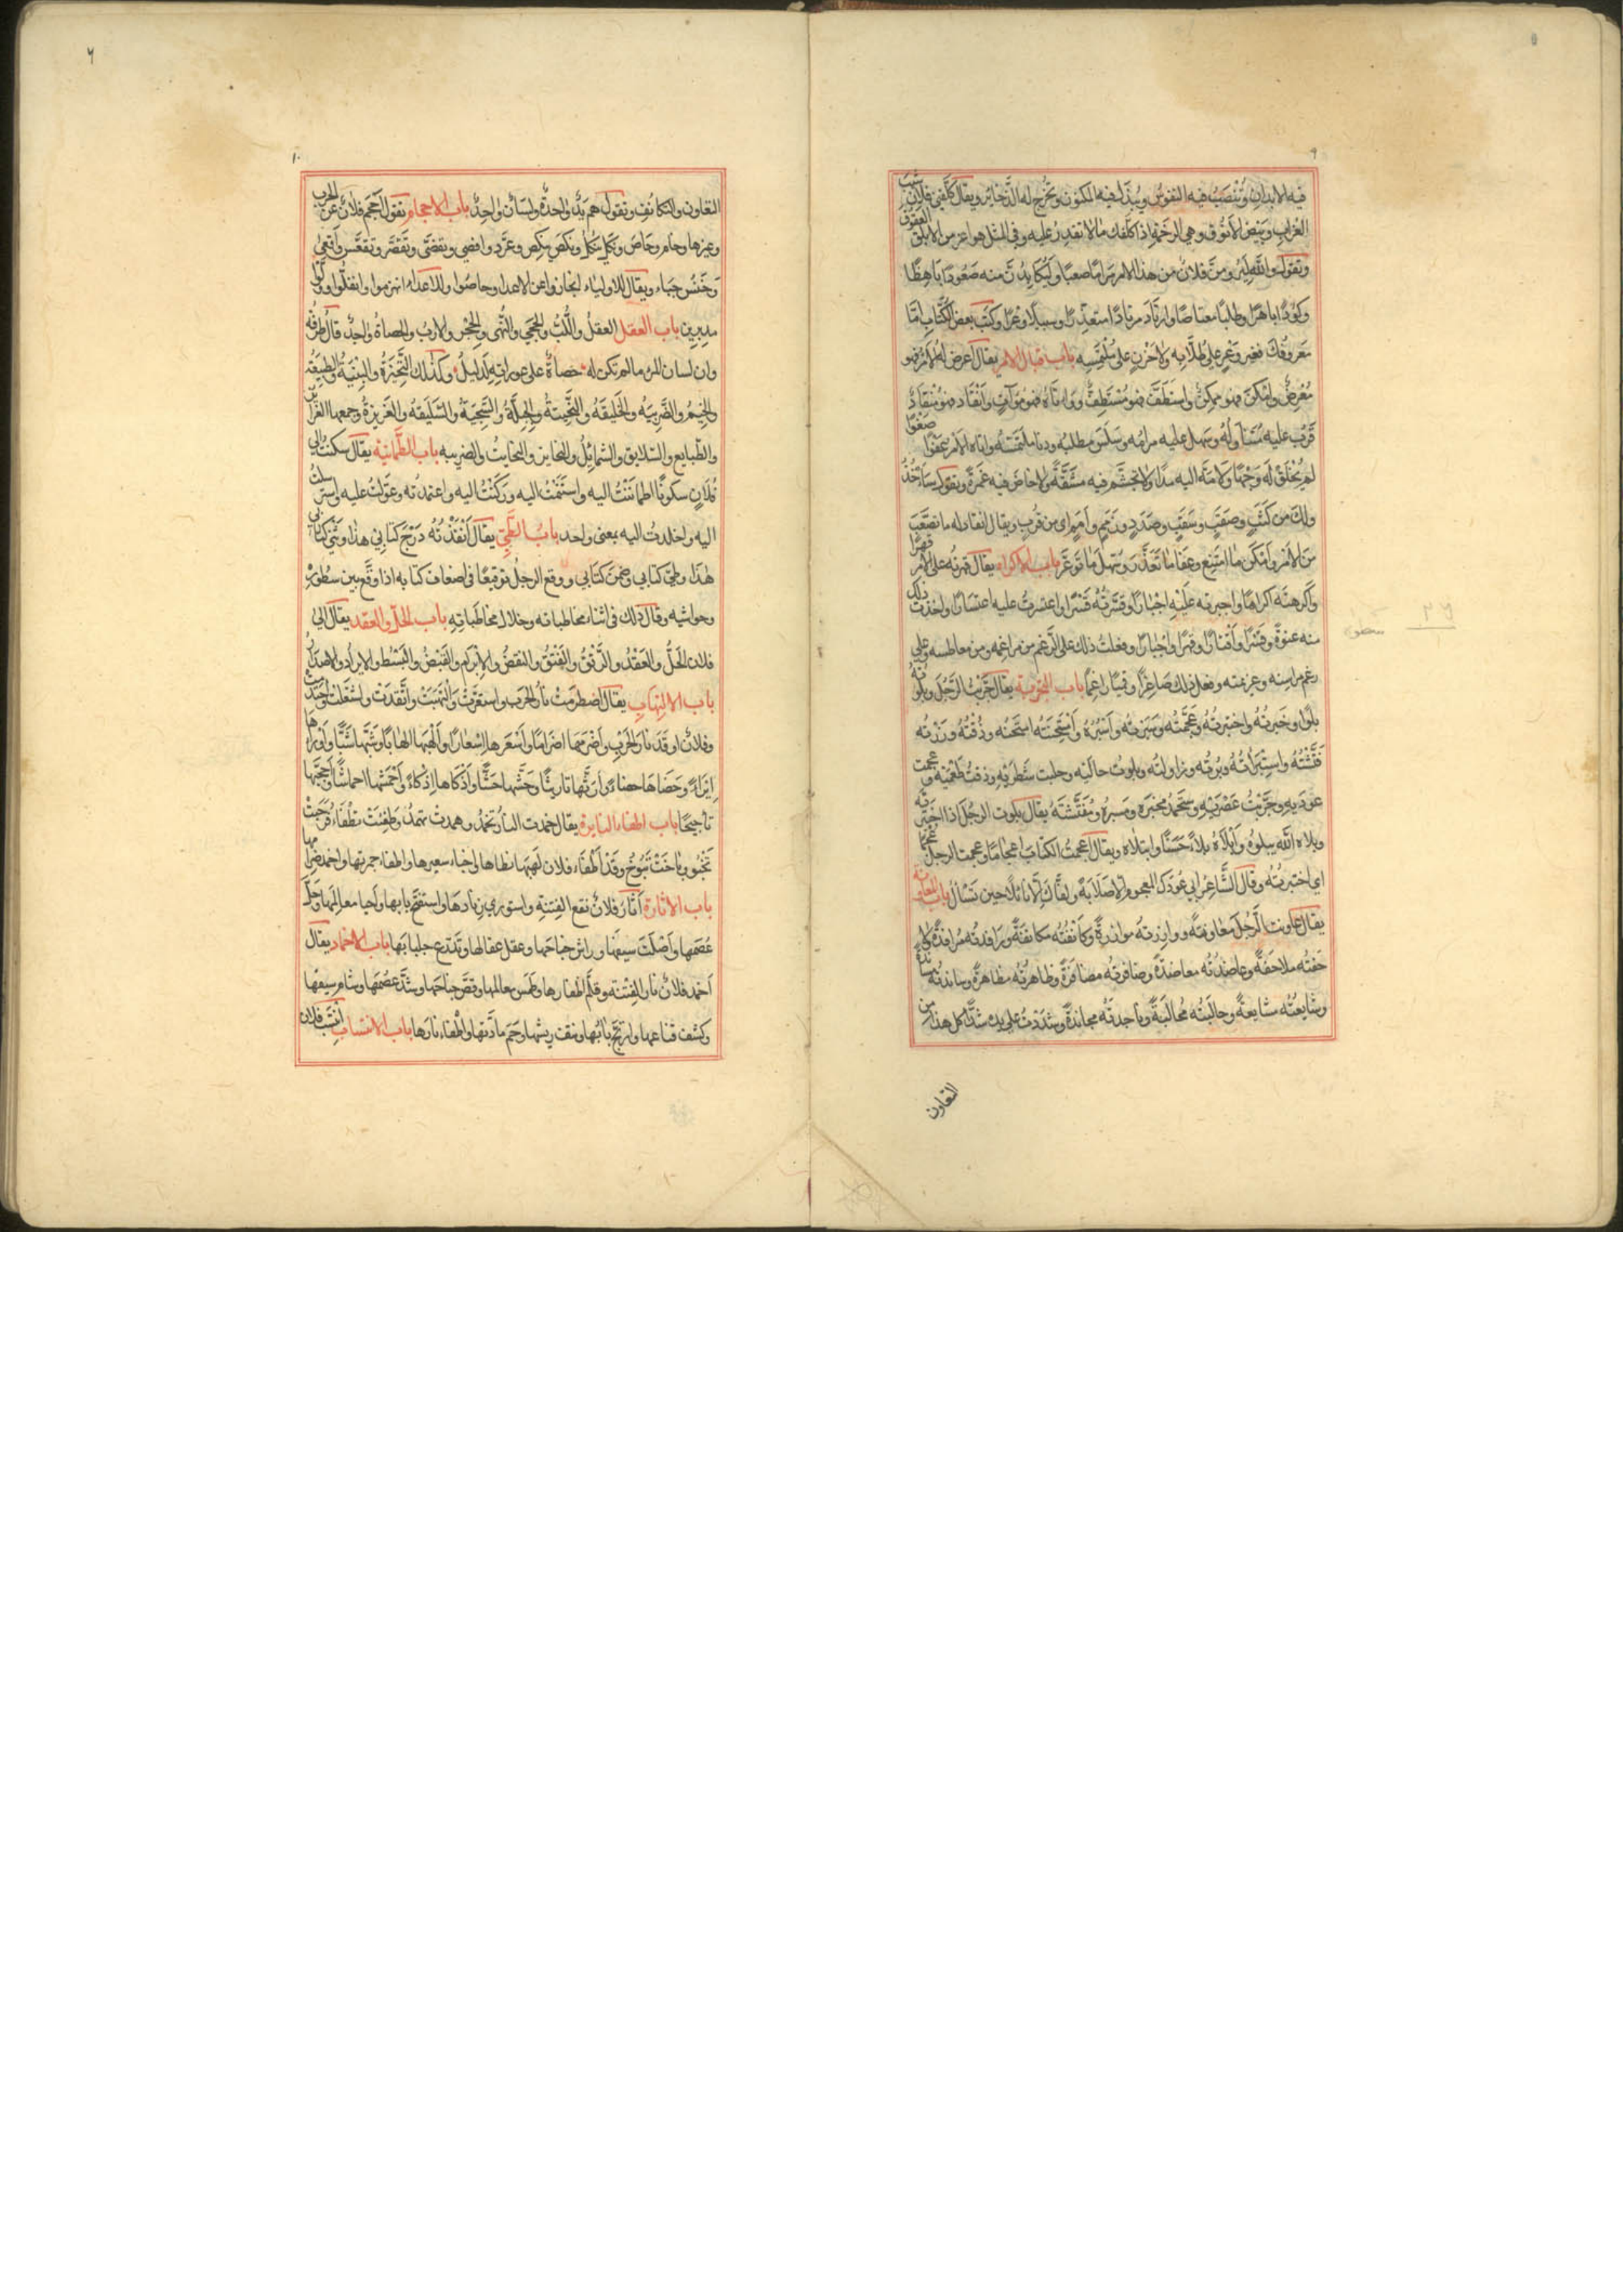 ٩
فيه الابدان وتنصب فيه النفوس ويبذل فيه المكنون وتخرج له الذخائر ويقال كلفني فلان شيب
الغراب وبيض الانوق وهي الرخمة اذا كلفك ما لا تقدر عليه وفي المثل هو اعز من الابلق العقوق
وتقول والله ليرومن فلان من هذا الامر مراما صعبا وليكابدن منه صعودا باهظا
وكؤدا باهرا وطلبا معتاصا وارتاد مرتادا متعذرا وسبيلا وعرا وكتب بعض الكتاب اما
معروفك فغير وعر على طلابه ولا حزن على ملتمسيه باب قبال الامر يقال اعرض له الامر فهو
معرض وامكن فهو ممكن واستطف فهو مستطف وواتاه فهو موات وانقاد فهو منقاد
قرب عليه متناوله وسهل عليه مرامه وسلس مطلبه ودنا ملتمسه واتاه الامر عفوا صفوا
لم يخلق له وجها ولا مد اليه مدا ولا تجشم فيه مشقة ولا خاض فيه غمرة ويقول ساخذ
ذلك من كثب وصقب وسقب وصدد وزمم وامم اي من قرب ويقال انقاد له ما تصعب
من الامر وامكن ما امتنع وعفا ما تعذر وسهل ما توعر باب الاكراه يقال قهرته على الامر قهرا
واكرهته اكراها واجبرته عليه اجبارا وقسرته قسرا واعتسرت عليه اعتسارا واخذت ذلك
منه عنوة وقسرا واقتسارا وقهرا واجبارا وفعلت ذلك على الرغم من مراغمه ومن معاطسه وعلى
رغم مراسنه وعزيمته وفعل ذلك صاغرا وقميا راغما باب التجربة يقال جربت الرجل وبلوته
بلوا وخبرته واختبرته وعجمته وسبرته واسبره وامتحنته امتحنه وذقته ورزته
فتشته واستبراته وبرته وزاولته وبلوت حالتيه وحلبت شطريه وذقت طعميه وعجمت
عوديه وجربت عصريه وستحمد مخبره ومسبره ومفتشه يقال بلوت الرجل اذا اختبرته
وبلاه الله يبلوه وابلاه بلاء حسنا وابتلاه ويقال اعجمت الكتاب اعجاما وعجمت الرجل عجما
اي اختبرته وقال الشاعر ابى عودك المعجوم الا صلابة وكفاك الا نائلا حين تسال باب المعاونة
يقال عاونت الرجل معاونة ووازرته موازرة وكانفته مكانفة ورافدته مرافدة ولا
حفته ملاحفة وعاضدته معاضدة وضافرته مضافرة وظاهرته مظاهرة وساندته مساندة
وشايعته مشايعة وحالبته محالبة وشددت على يده شدا كل هذا من
التعاون
٦
١٠
التعاون والتكانف وتقول هم يد واحدة ولسان واحد باب الاحجام تقول احجم فلان عن الحرب
وغيرها وحام وحاص ونكل ينكل ونكص ينكص وعرد
وخنس جباء ويقال للاولياء انحازوا عن الاعدا وحاصوا وللاعداء انهزموا وانفلوا وولوا
مدبرين باب العقل العقل واللب والحجى والنهى والحجر والارب والحصاة واحد قال طرفة
وان لسان المرء ما لم تكن له حصاة على عوراته لدليل وكذلك النحيزة والبنية والطبيعة
والخيم والضريبة والخليقة والنحيتة والجبلة والسجية والسليقة والغريزة وجمعها الغرائز
والطبايع والسلايق والشمائل والنحايز والنحايت والضريبه باب الطمانية يقال سكنت الى
فلان سكونا اطماننت اليه واستنمت اليه وركنت اليه واعتمدته وعولت عليه واسترسلت
اليه واخلدت اليه بمعنى واحد باب الطي يقال انفذته درج كتابي هذا وثني كتابي
هذا وطي كتابي وضمن كتابي ووقع الرجل توقيعا في اضعاف كتابه اذا وقع بين سطوره
وحواشيه وقال ذلك في اثناء مخاطباته وخلال مخاطباته باب الحل والعقد يقال الى
فلان الحل والعقد والرتق والفتق والنقض والابرام والقبض والبسط والايراد والاصدار
باب الالتهاب يقال اضطرمت نار الحرب واستعرت والتهبت واتقدت واشتعلت
وفلان اوقد نار الحرب واضرمها اضراما واسعرها اسعارا والهبها الهابا وشبها شبا واوراها
ايراء وحضاها حضاء وارثها تاريثا وحشها حشا واذكاها اذكاء واحمشها احماشا واججها
تاجيجا باب اطفاء النايرة يقال خمدت النار تخمد وهمدت تهمد وطفئت تطفاء
تخبو وباخت تبوخ وقد اطفاء فلان لهبها واخباء سعيرها واطفاء جمرتها واخمد ضرامها
باب الاثارة اثار فلان نقع الفتنة واستورى زنادها واستفتح بابها واحيا معالمها وحل
عصمها واصلت سيفها وراش جناحها وعقل عقالها وتدرع جلبابها باب الاخماد يقال
اخمد فلان نار الفتنة وقلم اظفارها وطمس معالمها وقص جناحها وشد عصمها وشام سيفها
وكشف قناعها وارتج بابها ونتف ريشها وحسم مادتها واطفاء نارها باب الانتساب انتسب فلان